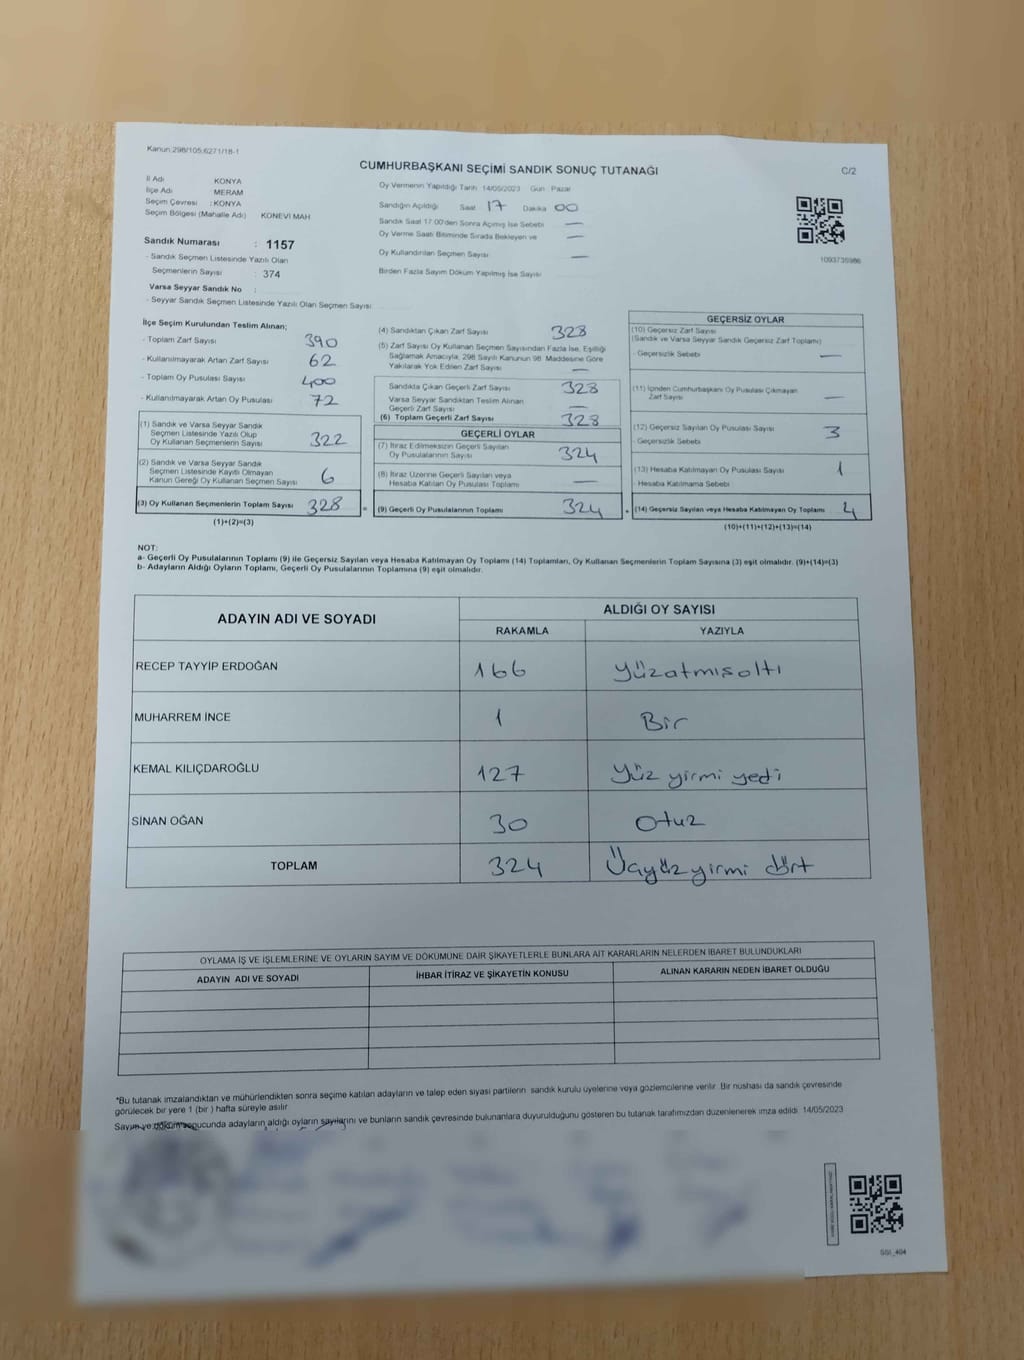 Kanun:298/105,6271/18-1
CUMHURBAŞKANI SEÇİMİ SANDIK SONUÇ TUTANAĞI
C/2
İl Adı KONYA
İlçe Adı MERAM
Seçim Çevresi : KONYA
Seçim Bölgesi (Mahalle Adı) KONEVİ MAH
Sandık Numarası : 1157
- Sandık Seçmen Listesinde Yazılı Olan
Seçmenlerin Sayısı : 374
Varsa Seyyar Sandık No :
- Seyyar Sandık Seçmen Listesinde Yazılı Olan Seçmen Sayısı
Oy Vermenin Yapıldığı Tarih 14/05/2023 Gün : Pazar
Sandığın Açıldığı Saat 17 Dakika 00
Sandık Saat 17:00'den Sonra Açılmış İse Sebebi —
Oy Verme Saati Bitiminde Sırada Bekleyen ve —
Oy Kullandırılan Seçmen Sayısı —
Birden Fazla Sayım Döküm Yapılmış İse Sayısı
1093735986
İlçe Seçim Kurulundan Teslim Alınan;
- Toplam Zarf Sayısı 390
- Kullanılmayarak Artan Zarf Sayısı 62
- Toplam Oy Pusulası Sayısı 400
- Kullanılmayarak Artan Oy Pusulası 72
(1) Sandık ve Varsa Seyyar Sandık
Seçmen Listesinde Yazılı Olup
Oy Kullanan Seçmenlerin Sayısı 322
(2) Sandık ve Varsa Seyyar Sandık
Seçmen Listesinde Kayıtlı Olmayan
Kanun Gereği Oy Kullanan Seçmen Sayısı 6
(3) Oy Kullanan Seçmenlerin Toplam Sayısı 328 =
(1)+(2)=(3)
(4) Sandıktan Çıkan Zarf Sayısı 328
(5) Zarf Sayısı Oy Kullanan Seçmen Sayısından Fazla İse, Eşitliği
Sağlamak Amacıyla, 298 Sayılı Kanunun 98. Maddesine Göre
Yakılarak Yok Edilen Zarf Sayısı —
Sandıkta Çıkan Geçerli Zarf Sayısı 328
Varsa Seyyar Sandıktan Teslim Alınan
Geçerli Zarf Sayısı —
(6) Toplam Geçerli Zarf Sayısı 328
GEÇERLİ OYLAR
(7) İtiraz Edilmeksizin Geçerli Sayılan
Oy Pusulalarının Sayısı 324
(8) İtiraz Üzerine Geçerli Sayılan veya
Hesaba Katılan Oy Pusulası Toplamı —
(9) Geçerli Oy Pusulalarının Toplamı 324 +
GEÇERSİZ OYLAR
(10) Geçersiz Zarf Sayısı
(Sandık ve Varsa Seyyar Sandık Geçersiz Zarf Toplamı)
- Geçersizlik Sebebi —
(11) İçinden Cumhurbaşkanı Oy Pusulası Çıkmayan
Zarf Sayısı —
(12) Geçersiz Sayılan Oy Pusulası Sayısı 3
- Geçersizlik Sebebi
(13) Hesaba Katılmayan Oy Pusulası Sayısı 1
- Hesaba Katılmama Sebebi
(14) Geçersiz Sayılan veya Hesaba Katılmayan Oy Toplamı 4
(10)+(11)+(12)+(13)=(14)
NOT:
a- Geçerli Oy Pusulalarının Toplamı (9) ile Geçersiz Sayılan veya Hesaba Katılmayan Oy Toplamı (14) Toplamları, Oy Kullanan Seçmenlerin Toplam Sayısına (3) eşit olmalıdır. (9)+(14)=(3)
b- Adayların Aldığı Oyların Toplamı, Geçerli Oy Pusulalarının Toplamına (9) eşit olmalıdır.
ADAYIN ADI VE SOYADI ALDIĞI OY SAYISI
RAKAMLA YAZIYLA
RECEP TAYYİP ERDOĞAN 166 Yüzatmışaltı
MUHARREM İNCE 1 Bir
KEMAL KILIÇDAROĞLU 127 Yüz yirmi yedi
SİNAN OĞAN 30 Otuz
TOPLAM 324 Üçyüz yirmi dört
OYLAMA İŞ VE İŞLEMLERİNE VE OYLARIN SAYIM VE DÖKÜMÜNE DAİR ŞİKAYETLERLE BUNLARA AİT KARARLARIN NELERDEN İBARET BULUNDUKLARI
ADAYIN ADI VE SOYADI İHBAR İTİRAZ VE ŞİKAYETİN KONUSU ALINAN KARARIN NEDEN İBARET OLDUĞU
*Bu tutanak imzalandıktan ve mühürlendikten sonra seçime katılan adayların ve talep eden siyasi partilerin sandık kurulu üyelerine veya gözlemcilerine verilir. Bir nüshası da sandık çevresinde
görülecek bir yere 1 (bir ) hafta süreyle asılır
Sayım ve döküm sonucunda adayların aldığı oyların sayılarını ve bunların sandık çevresinde bulunanlara duyurulduğunu gösteren bu tutanak tarafımızdan düzenlenerek imza edildi. 14/05/2023
SSI_404